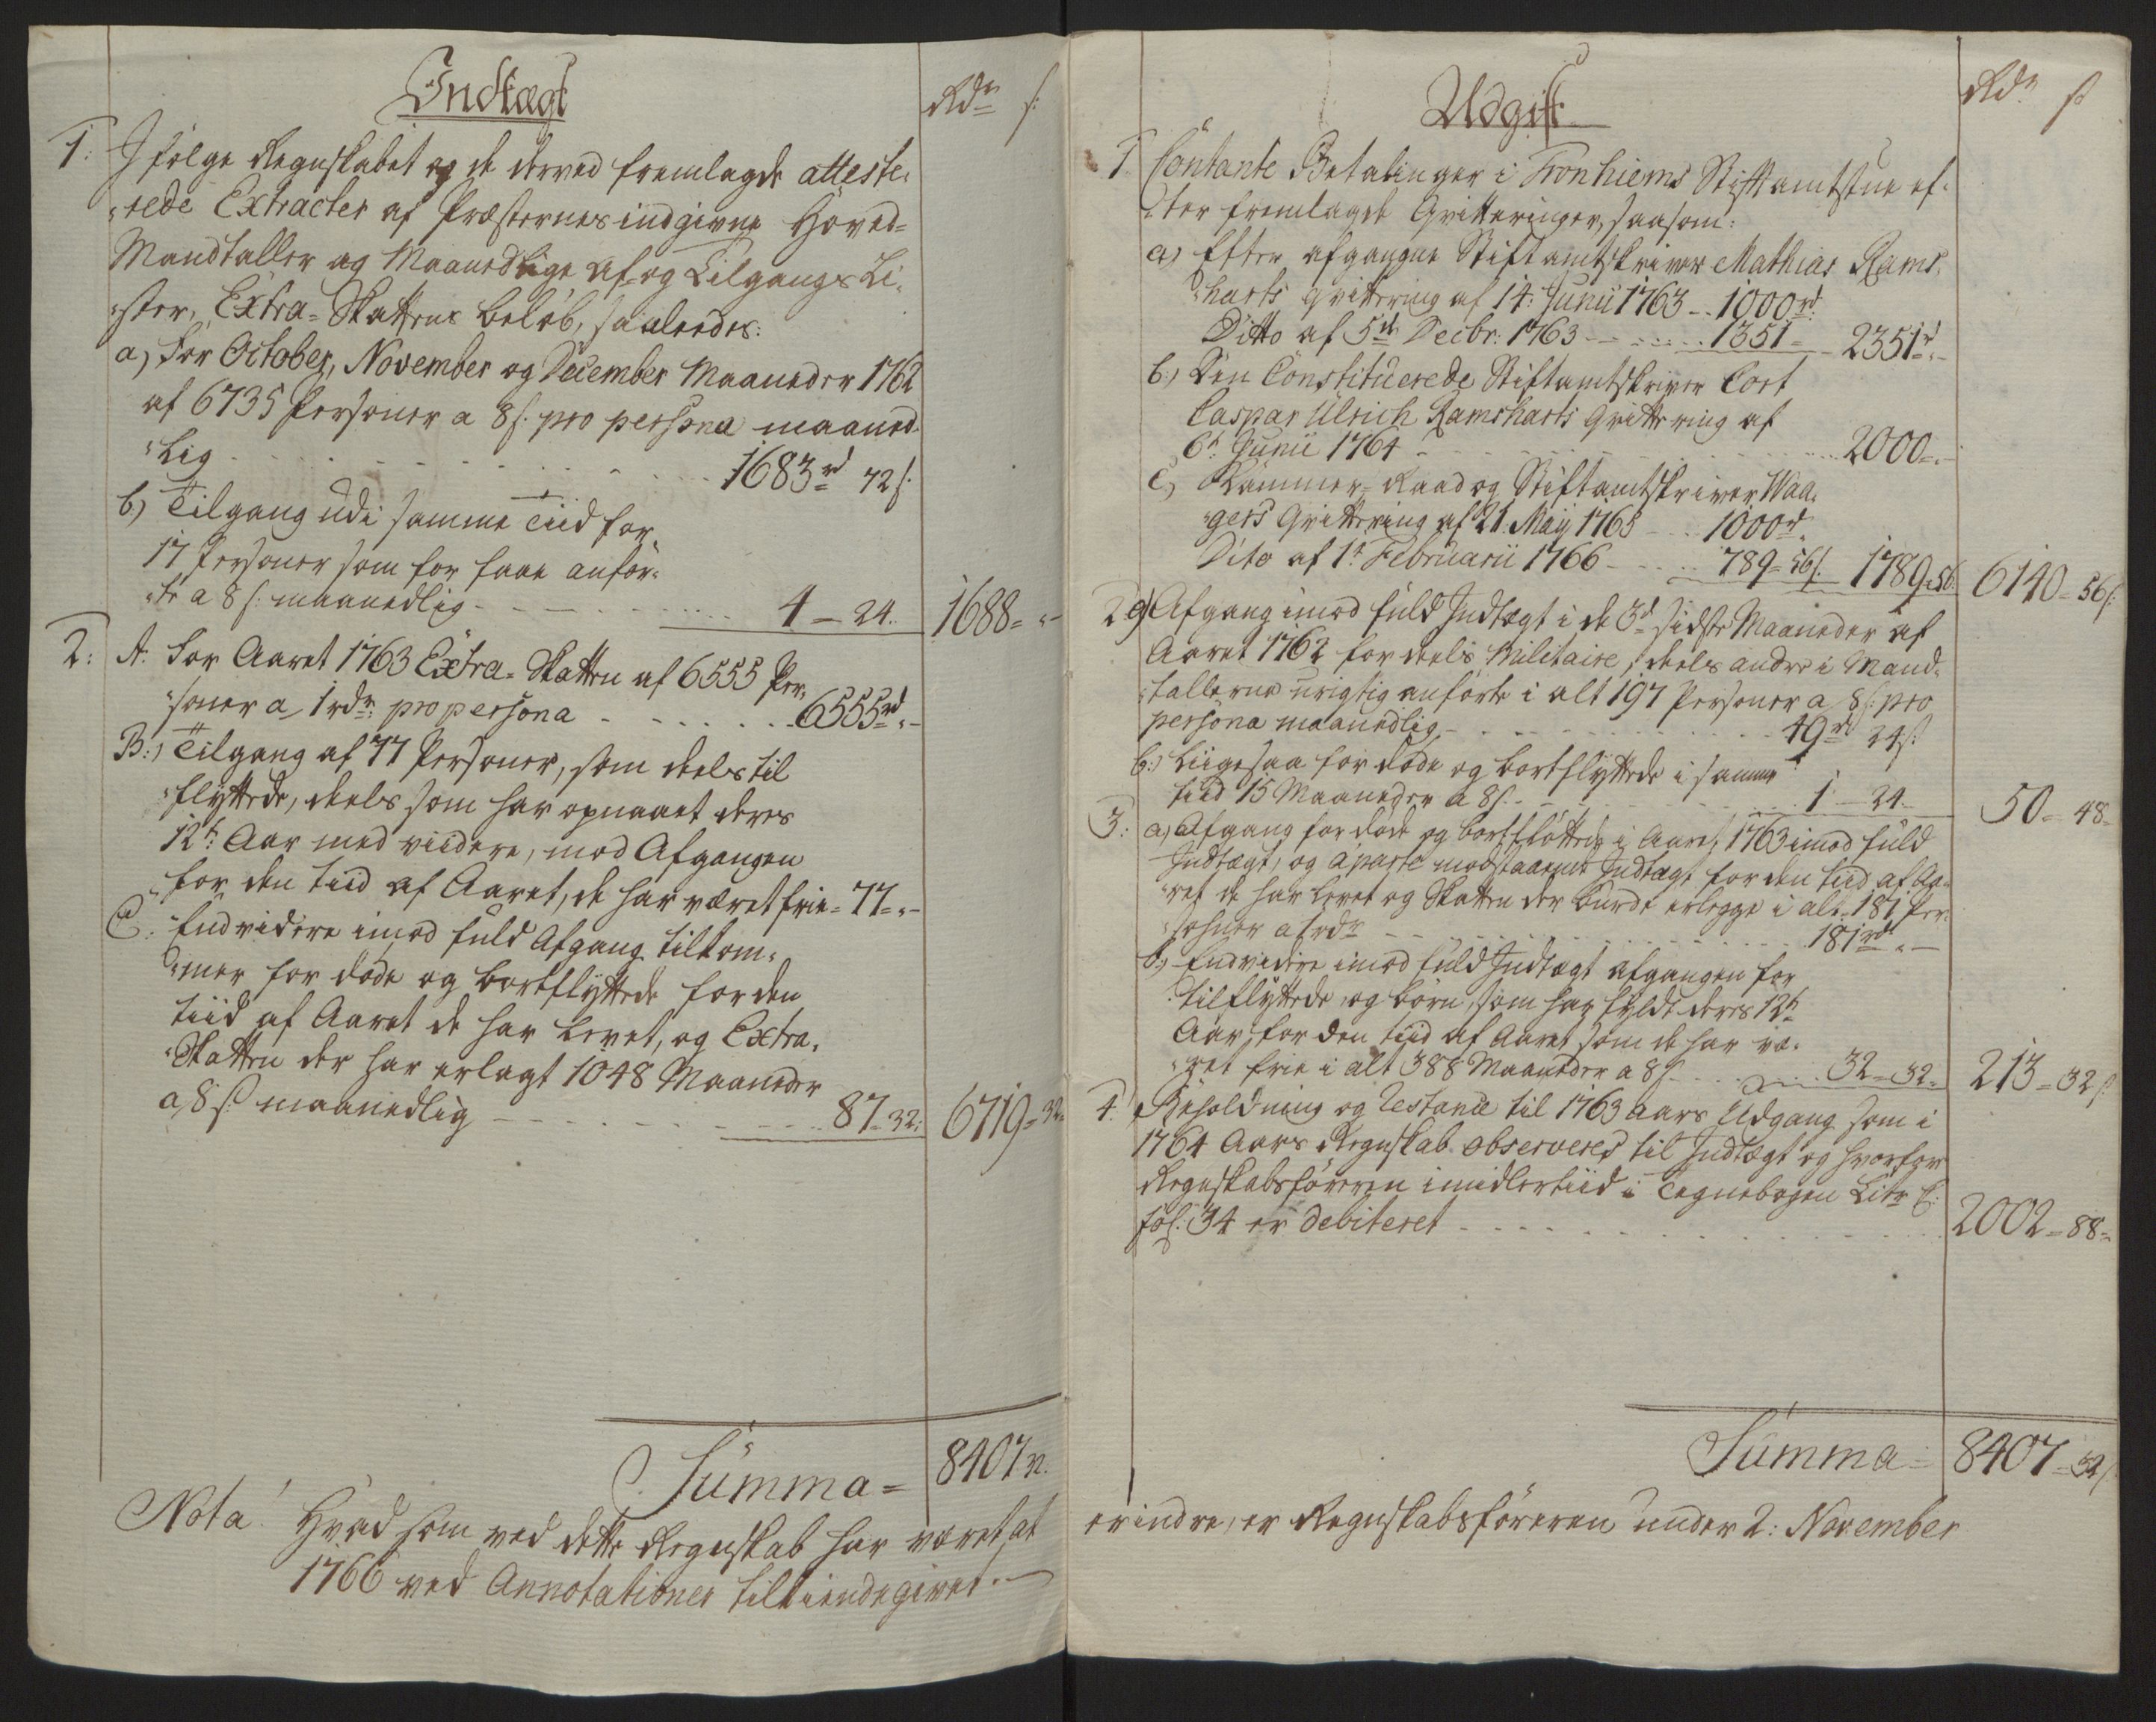 Indtægt
Rdr ß:
1: I følge Regnskabet og de derved fremlagde atteste-
rede Extracter af Præsternes indgivne Hoved-
Mandtaller og Maanedlige af- og Tilgangs Li-
ster, Extra-Skattens beløb, saaledes:
a) for October, November og December Maaneder 1762
af 6735 Personer a 8 ß. pro persona maaned-
lig - - - 1683rd 72 ß.
b) Tilgang udi samme Tiid for
17 Personer som for faae anför-
te a 8 ß: maanedlig - - - 4 - 24. 1688 „ -
2: A: for Aaret 1763 Extra-Skatten af 6555 Per-
soner a 1 rdr: pro persona - - - 6555rd „ -
B:) Tilgang af 77 Personer, som deels til
flyttede, deels som har opnaaet deres
12te Aar med viidere, mod Afgangen
for den tiid af Aaret, de har været frie - 77 „ -
C: Endvidere imod fuld Afgang tilkom-
mer for døde og bortflyttede for den
tiid af Aaret de har levet, og Extra-
Skatten der har erlagt 1048 Maaneder
a 8 ß maanedlig - - - 87 - 32: 6719 - 32 -
Summa = 8407 32.
Nota! Hvad som ved dette Regnskab har været at
1766 ved Annotationer tilkiendegivet. -
Udgift
Rdr ß
1 Contante Betalinger i Tronhiems Stiftamtstue ef-
ter fremlagde Qvitteringer, saasom:
a) Efter afgangne Stiftamtskriver Mathias Rams-
harts qvittering af 14: Junii 1763 - - 1000rd:
Ditto af 5te Decbr: 1763 - - - 1351 - 2351rd „ -
b:) Den Constituerede Stiftamtskriver Cort
Caspar Ulrich Ramsharts Qvittering af
6te Junii 1764 - - - 2000 „ -
c) Kammer-Raad og Stiftamtskriver Waa-
gers Qvittering af 21. Maij 1765 - - 1000rd „
Dito af 1te Februarii 1766 - - - 789 - 56 ß. 1789 - 56 6140 - 56 ß:
2 a) Afgang imod fuld Indtægt i de 3de sidste Maaneder af
Aaret 1762 for deels Militaire, deels andre i Mand-
tallerne urigtig anførte i alt 197 Personer a 8 ß: pro
persona maanedlig - - - 49rd 24 ß
b:) Liigesaa for døde og bortflyttede i samme
tiid 15 Maaneder a 8 ß. - - - 1 - 24 - 50 - 48 -
3: a) Afgang for døde og bortfløttede i Aaret 1763 imod fuld
Indtægt, og aparte modstaaende Indtægt for den tiid af Aa-
ret de har levet og Skatten der burde erlegge i alt 181 Per-
sohner a 1 rdr - - - 181rd „ -
b) Endvidere imod fuld Indtægt afgangen for
tilflyttede, og børn, som har fyldt deres 12te
Aar, for den tiid af Aaret som de har væ-
ret frie i alt 388 Maaneder a 8 ß - - - 32 - 32 - 213 - 32 ß
4: Beholdning og Restance til 1763 Aars Udgang som i
1764 Aars Regnskab observeres til Indtægt og hvorfor
Regnskabsføreren imidlertiid i Tegnebogen Litr C:
fol. 34 er debiteret - - - 2002 - 88 -
Summa = 8407 - 32 ß
erindre, er Regnskabsføreren under 2: November